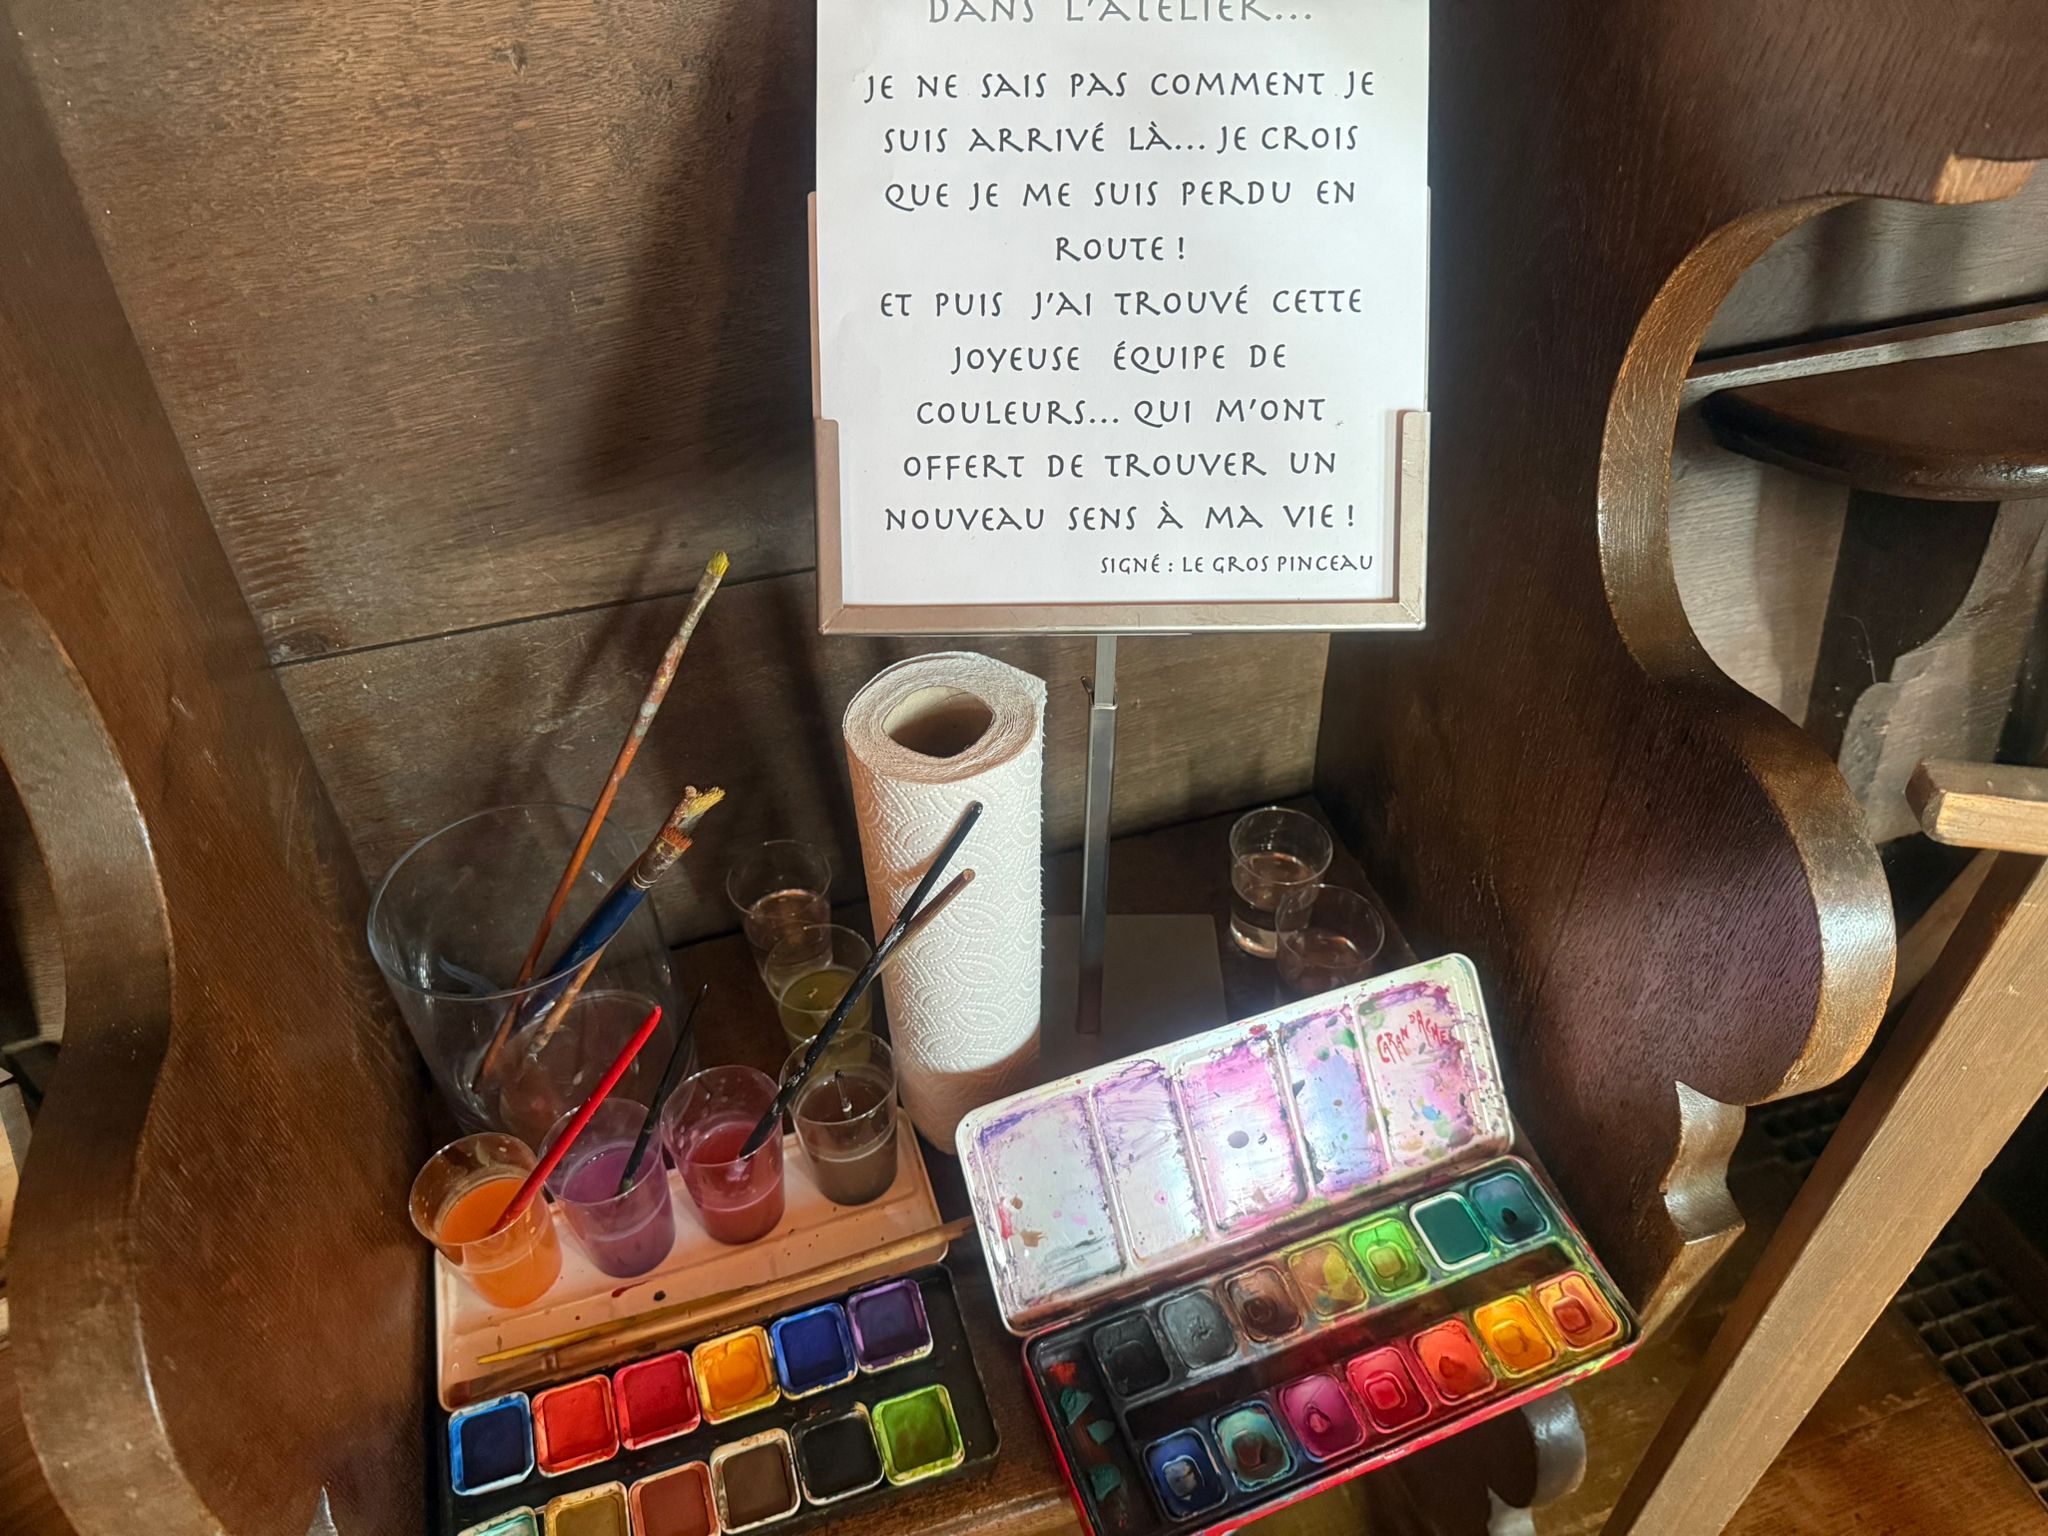 DANS L'ATELIER...
JE NE SAIS PAS COMMENT JE
SUIS ARRIVÉ LÀ... JE CROIS
QUE JE ME SUIS PERDU EN
ROUTE !
ET PUIS J'AI TROUVÉ CETTE
JOYEUSE ÉQUIPE DE
COULEURS... QUI M'ONT
OFFERT DE TROUVER UN
NOUVEAU SENS À MA VIE !
SIGNÉ : LE GROS PINCEAU
CARAN D'ACHE